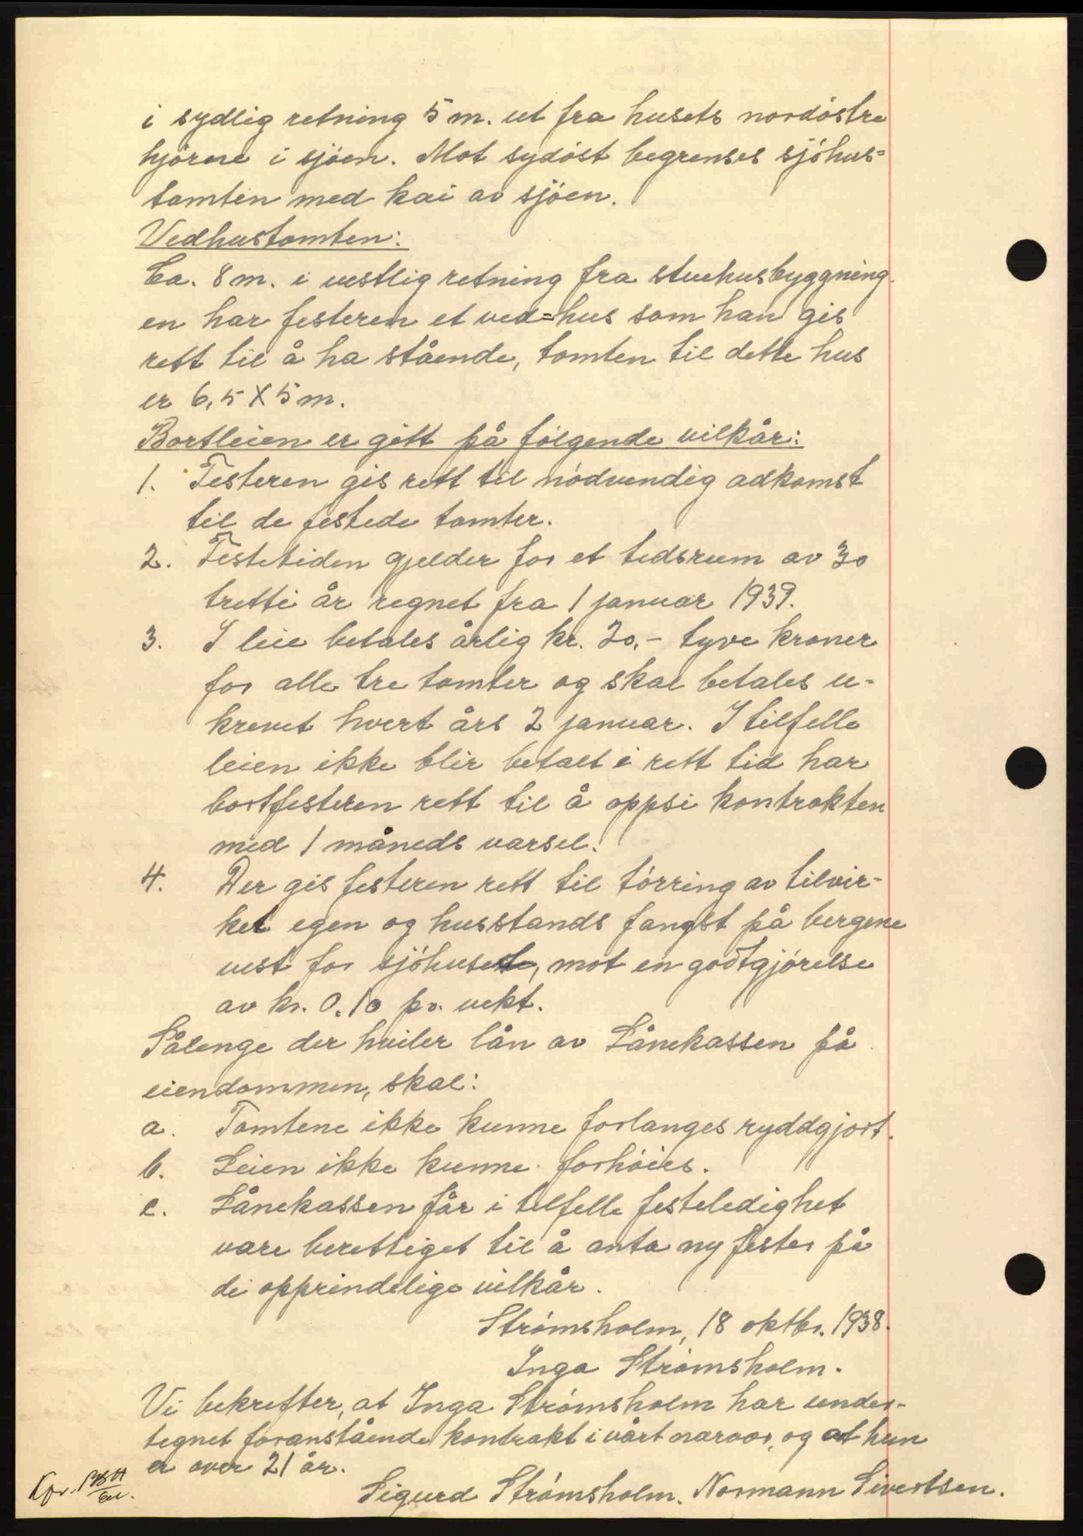 i sydlig retning 5 m. ut fra husets nordöstre
hjörne i sjöen. Mot sydöst begrenses sjöhus=
tomten med kai av sjöen.
Vedhustomten:
Ca. 8 m. i vestlig retning fra stuehusbyggning
en har festeren et ved=hus som han gis
rett til å ha stående, tomten til dette hus
er 6,5 X 5 m.
Bortleien er gitt på fölgende vilkår:
1. Festeren gis rett til nödvendig adkomst
til de festede tomter.
2. Festetiden gjelder for et tidsrum av 30
tretti år regnet fra 1 januar 1939.
3. I leie betales årlig kr. 20,- tyve kroner
for alle tre tomter og skal betales u-
krevet hvert års 2 januar. I tilfelle
leien ikke blir betalt i rett tid har
bortfesteren rett til å oppsi kontrakten
med 1 måneds varsel.
4. Der gis festeren rett til törring av tilvir-
ket egen og husstands fangst på bergene
vest for sjöhuset, mot en godtgjörelse
av kr. 0.10 pr. vekt.
Sålenge der hviler lån av Lånekassen på
eiendommen, skal:
a. Tomtene ikke kunne forlanges ryddgjort.
b. Leien ikke kunne forhöies.
c. Lånekassen får i tilfelle festeledighet
være berettiget til å anta ny fester på
de opprindelige vilkår.
Strömsholm, 18 oktbr. 1938.
Inga Strömsholm.
Vi bekrefter, at Inga Strömsholm har under-
tegnet foranstående kontrakt i vårt nærvær, og at hun
er over 21 år.
Sigurd Strömsholm. Normann Sivertsen.